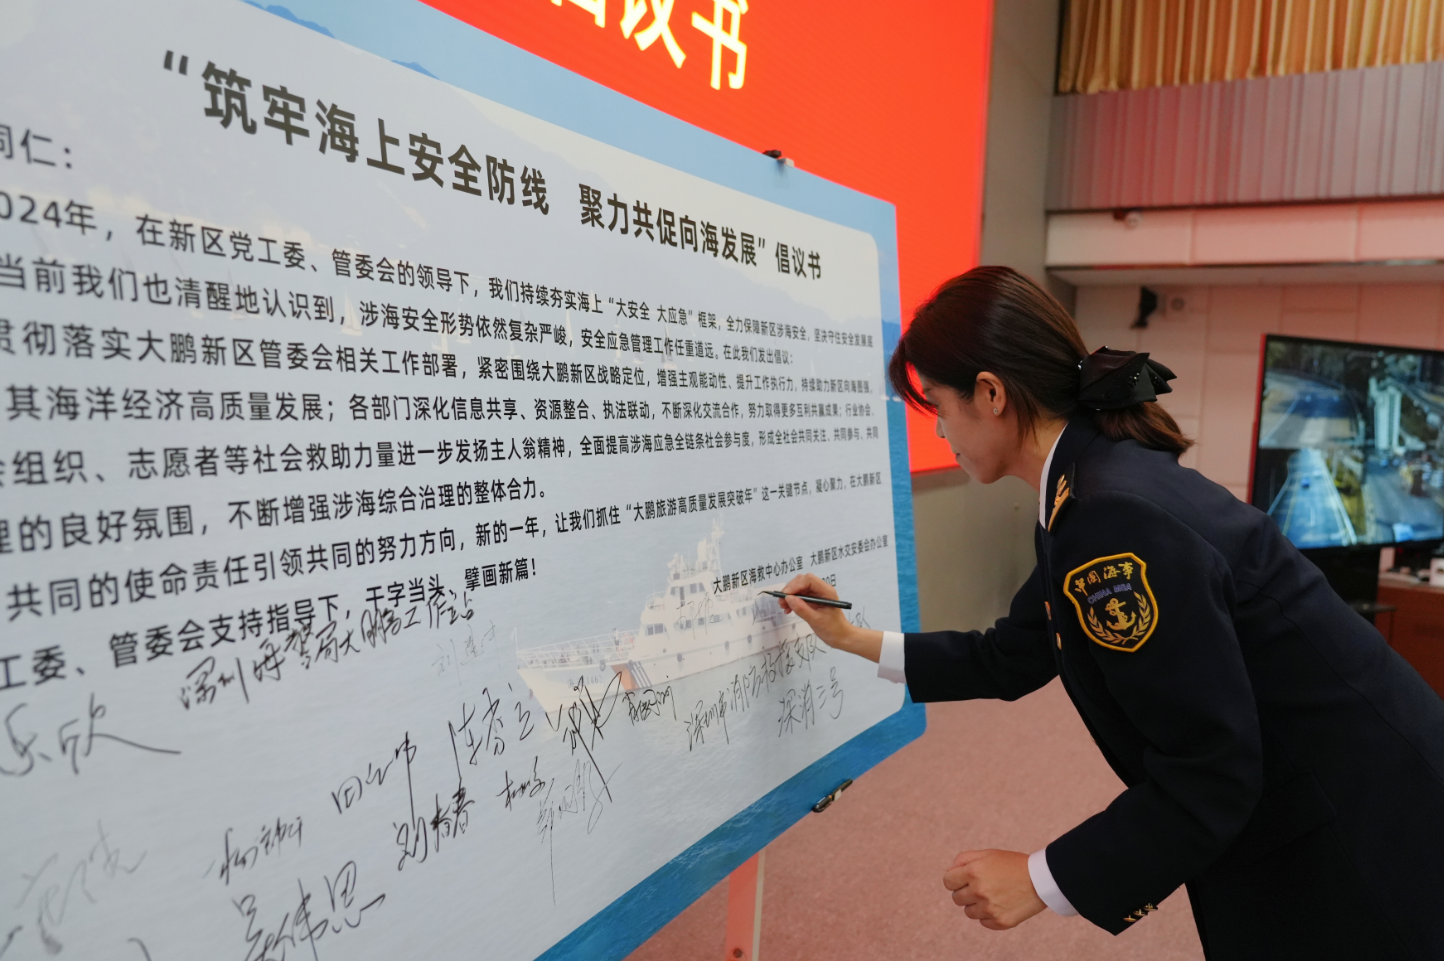 议书
“筑牢海上安全防线 聚力共促向海发展”倡议书
同仁：
024年，在新区党工委、管委会的领导下，我们持续夯实海上“大安全 大应急”框架，全力保障新区涉海安全，坚决守住安全发展底
当前我们也清醒地认识到，涉海安全形势依然复杂严峻，安全应急管理工作任重道远。在此我们发出倡议：
贯彻落实大鹏新区管委会相关工作部署，紧密围绕大鹏新区战略定位，增强主观能动性、提升工作执行力，持续助力新区向海图强，
其海洋经济高质量发展；各部门深化信息共享、资源整合、执法联动，不断深化交流合作，努力取得更多互利共赢成果；行业协会、
会组织、志愿者等社会救助力量进一步发扬主人翁精神，全面提高涉海应急全链条社会参与度，形成全社会共同关注、共同参与、共同
理的良好氛围，不断增强涉海综合治理的整体合力。
共同的使命责任引领共同的努力方向，新的一年，让我们抓住“大鹏旅游高质量发展突破年”这一关键节点，凝心聚力，在大鹏新区
工委、管委会支持指导下，干字当头、擘画新篇！
大鹏新区海救中心办公室 大鹏新区水交安委会办公室
日
深圳海警局大鹏工作站
深圳市消防救援支队
深消三号
陈春立
田红伟
刘椿春
中国海事
CHINA MSA